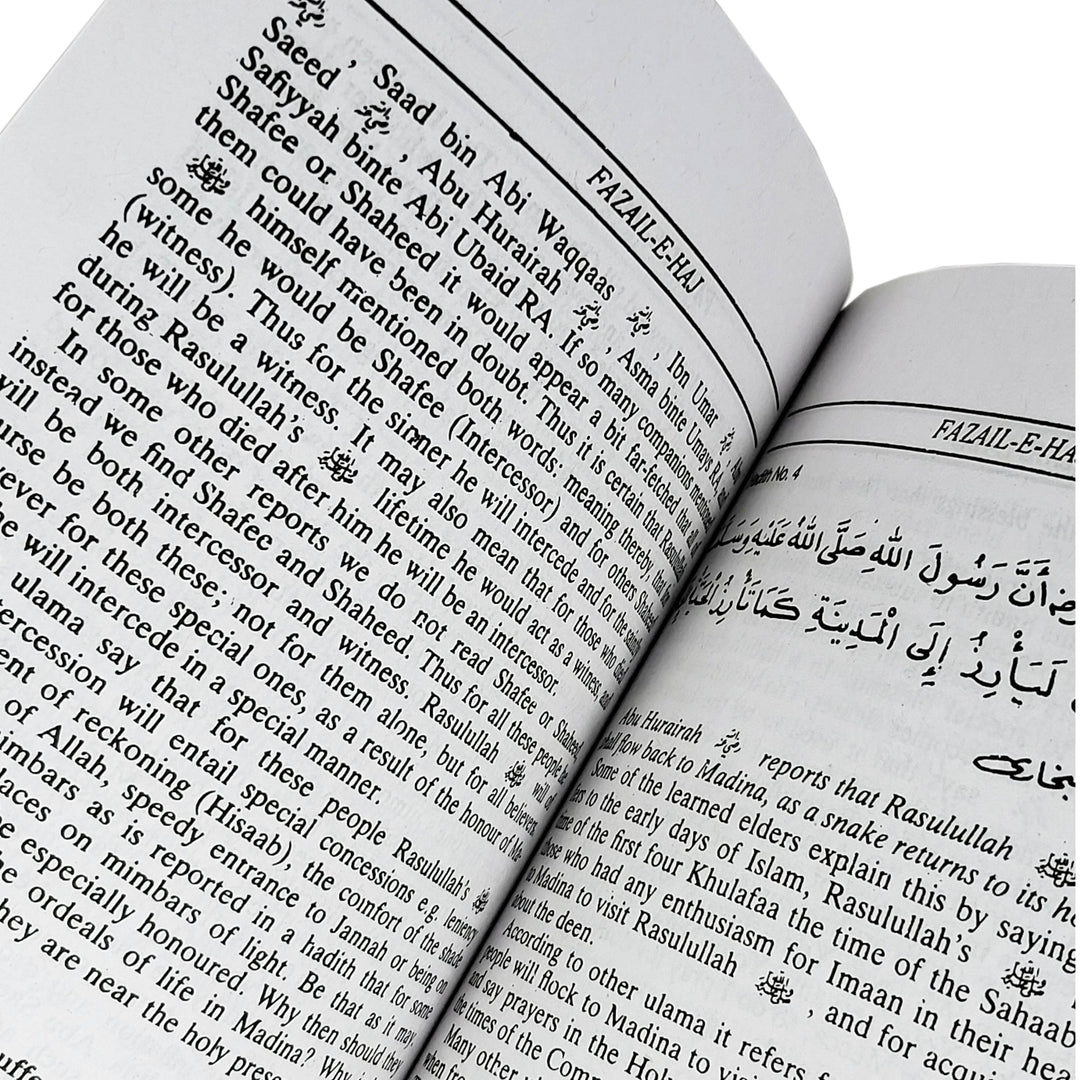 FAZAIL-E-HAJ
Saad bin Abi Waqqaas ؓ , Ibn Umar ؓ
Saeed ؓ , Abu Hurairah ؓ , Asma binte Umays RA,
Safiyyah binte Abi Ubaid RA. If so many companions mentioned
Shafee or Shaheed it would appear a bit far-fetched that all of
them could have been in doubt. Thus it is certain that
ﷺ himself mentioned both words; meaning thereby, that
some he would be Shafee (Intercessor) and for others Shaheed
(witness). Thus for the sinner he will intercede and for the
he will be a witness. It may also mean that for those who died
during Rasulullah's ﷺ lifetime he would act as a witness, and
for those who died after him he will be an intercessor.
In some other reports we do not read Shafee or Shaheed
instead we find Shafee and Shaheed. Thus for all these people he
will be both intercessor and witness. Rasulullah ﷺ will of
be both these; not for them alone, but for all believers,
for these special ones, as a result of the honour of
he will intercede in a special manner.
ulama say that for these people Rasulullah's ﷺ
will entail special concessions e.g. leniency
of reckoning (Hisaab), the comfort of the shade
of Allah, speedy entrance to Jannah or being on
as is reported in a hadith that for some
on mimbars of light. Be that as it may,
especially honoured. Why then should they
ordeals of life in Madina? Why
they are near the holy
FAZAIL-E-HAJ
No. 4
أَنَّ رَسُولَ اللهِ صَلَّى اللهُ عَلَيْهِ
لَيَأْرِزُ إِلَى الْمَدِينَةِ كَمَا تَأْرِزُ
Abu Hurairah ؓ reports that Rasulullah ﷺ
flow back to Madina, as a snake returns to its
Some of the learned elders explain this by saying
to the early days of Islam, Rasulullah's ﷺ
of the first four Khulafaa the time of the
those who had any enthusiasm for Imaan in their
Madina to visit Rasulullah ﷺ , and for
about the deen.
According to other ulama it refers
people will flock to Madina to
and say prayers in the
the times of the
Many other
when